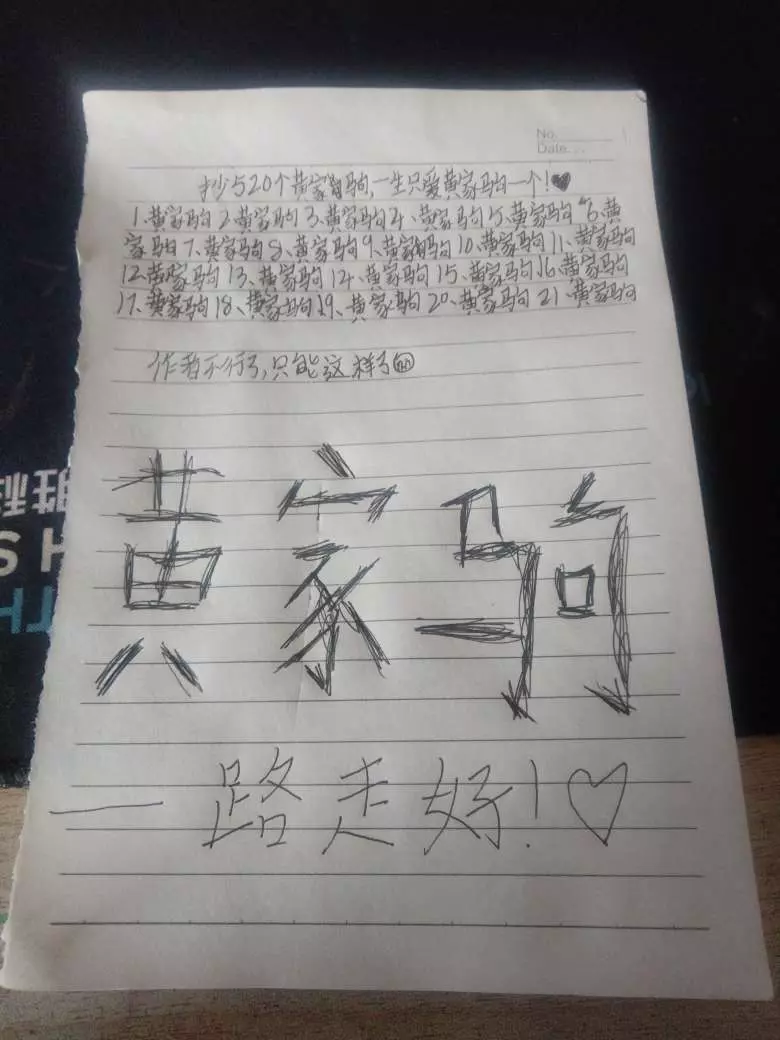 No.
Date.
抄520个黄家驹,一生只爱黄家驹一个!♥
1.黄家驹2.黄家驹3.黄家驹4.黄家驹5.黄家驹6.黄
家驹7.黄家驹8.黄家驹9.黄家驹10.黄家驹11.黄家驹
12.黄家驹13.黄家驹14.黄家驹15.黄家驹16.黄家驹
17.黄家驹18.黄家驹19.黄家驹20.黄家驹21.黄家驹
作者不行了,只能这样了
黄家驹
一路走好!♡